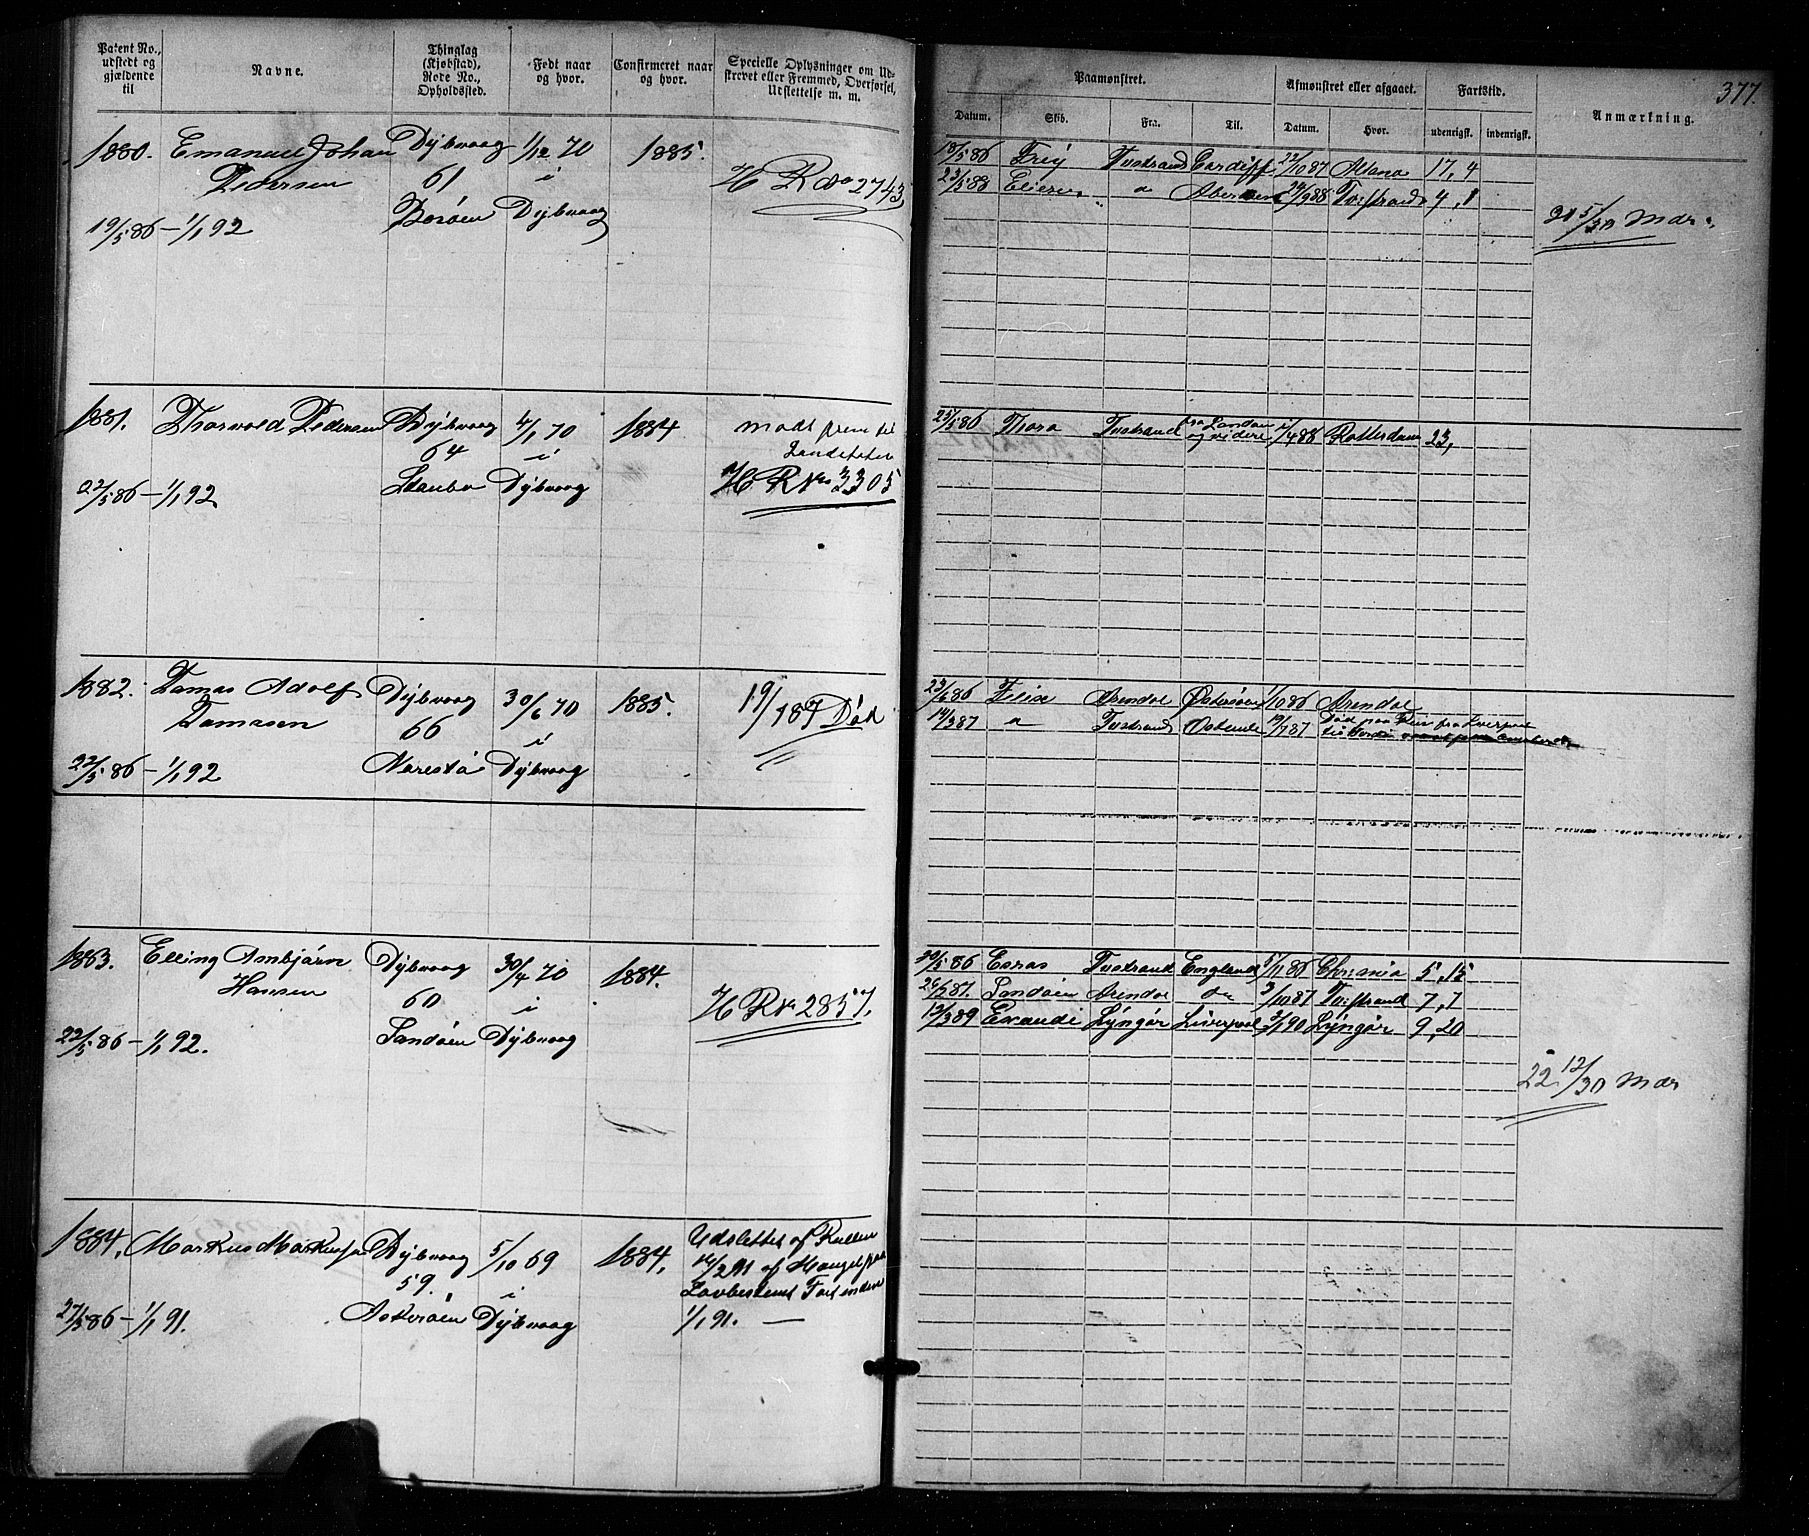 Patent No., udstedt og gjældende til
Navne.
Thinglag (Kjøbstad), Rode No., Opholdssted.
Født naar og hvor.
Confirmeret naar og hvor.
Specielle Oplysninger om Udskrevet eller Fremmed, Overførsel, Udslettelse m. m.
Paamønstret.
Afmønstret eller afgaaet.
Fartstid.
Anmærkning.
377.
Datum.
Skib.
Fra.
Til.
Datum.
Hvor.
udenrigsk.
indenrigsk.
1880. Emanuel Johan Dybvaag 1/12 70 1885.
Pedersen 61 i H R No 2743
19/5 86 – 1/1 92 Borøen Dybvaag
18/5 86 Frey Tvedestrand Cardiff 22/10 87 Altona 17, 4
23/5 88 " 24/9 88 Tvedestrand 4, 1
21 5/30 Mdr.
1881. Thorvald Pedersen Dybvaag 4/1 70 1884
64 i
22/5 86 – 1/1 92 Staubo Dybvaag H R No 3305
25/5 86 Thora Tvedestrand fra London og videre 1/4 88 Rotterdam 23,
1882. Tomas Adolf Dybvaag 30/6 70 1885. 19/7 87 Død
Tomasen 66 i
22/5 86 – 1/1 92 Narestø Dybvaag
23/6 86 Arendal Østersøen 1/10 86 Arendal
14/3 87 " Tvedestrand Ostende 19/7 87 Død paa
1883. Elling Ambjørn Dybvaag 30/4 70 1884.
Hansen 60 i H R No 2857.
22/5 86 – 1/1 92. Sandøen Dybvaag
20/5 86 Esras Tvedestrand England 5/11 86 Chrania 5, 15
26/2 87. Sandøen Arendal do 3/10 87 Tvedestrand 7, 7
13/3 89 Exaudi Lyngør Liverpool 3/1 90 Lyngør 9, 20
22 12/30 Mdr
1884. Markus Markussen Dybvaag 5/10 69 1884. Udslettet af Rullen
59. i 14/2 91 af Mangel paa
Lovbestemt Fart inden
27/5 86 – 1/1 91. Askerøen Dybvaag 1/1 91. —